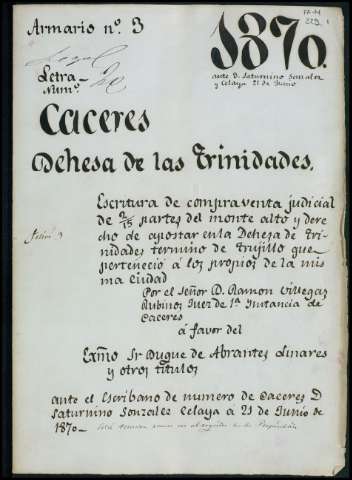 Armario nº. 3
1870.
ante D. Saturnino Gonzalez
y Celaya 21 de Junio
Legal
Letra
Numº.
Caceres
Dehesa de las Trinidades.
Escritura de compraventa judicial
de 2/15 partes del monte alto y dere
cho de apostar en la Dehesa de Tri-
nidades termino de Trujillo que
perteneció á los propios de la mis
ma ciudad
Por el Señor D. Ramon Villegas
Rubinos Juez de 1ª Instancia de
Caceres
á favor del
Exmº Sr Duque de Abrantes Linares
y otros titulos
ante el Escribano de numero de Caceres D
Saturnino Gonzalez Celaya a 21 de Junio de
1870.